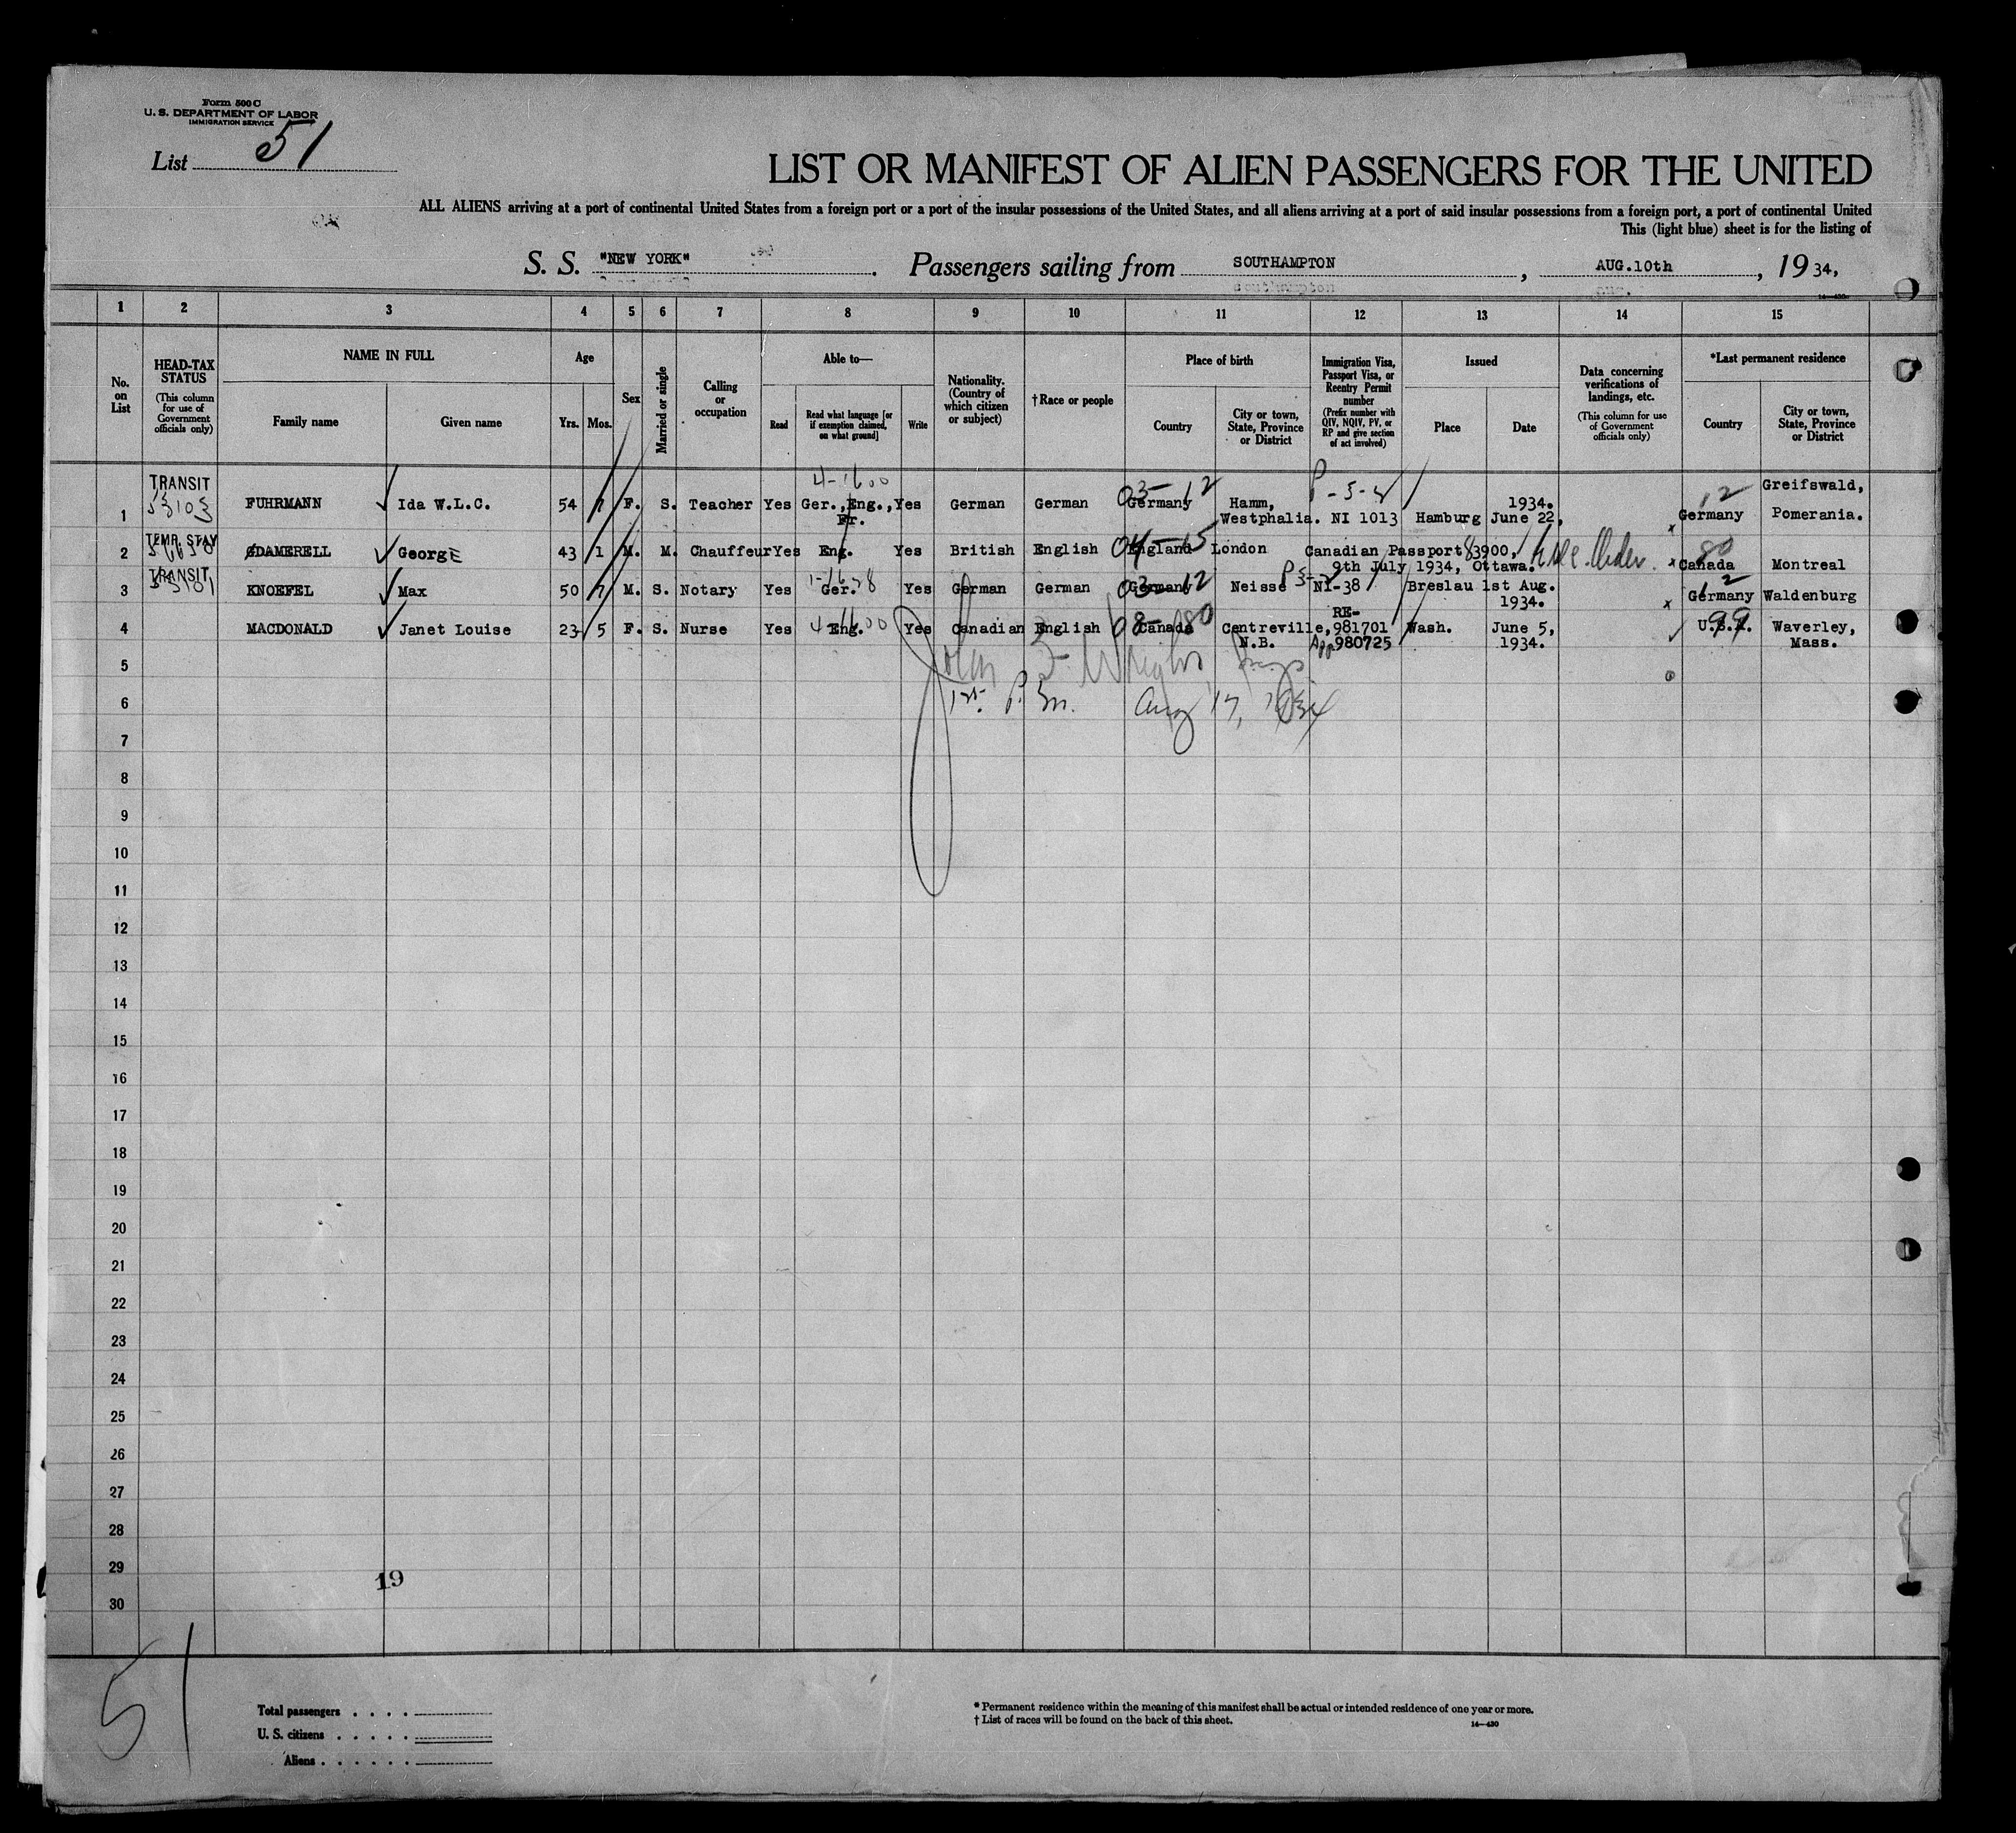 Form 500 C
U. S. DEPARTMENT OF LABOR
IMMIGRATION SERVICE
List 51
LIST OR MANIFEST OF ALIEN PASSENGERS FOR THE UNITED
ALL ALIENS arriving at a port of continental United States from a foreign port or a port of the insular possessions of the United States, and all aliens arriving at a port of said insular possessions from a foreign port, a port of continental United
This (light blue) sheet is for the listing of
S. S. "NEW YORK". Passengers sailing from SOUTHAMPTON, AUG.10th, 1934,
14—430
1 2 3 4 5 6 7 8 9 10 11 12 13 14 15
No. on List
HEAD-TAX STATUS
(This column for use of Government officials only)
NAME IN FULL
Family name
Given name
Age
Yrs.
Mos.
Sex
Married or single
Calling or occupation
Able to—
Read
Read what language [or if exemption claimed, on what ground]
Write
Nationality. (Country of which citizen or subject)
†Race or people
Place of birth
Country
City or town, State, Province or District
Immigration Visa, Passport Visa, or Reentry Permit number
(Prefix number with QIV, NQIV, PV, or RP and give section of act involved)
Issued
Place
Date
Data concerning verifications of landings, etc.
(This column for use of Government officials only)
*Last permanent residence
Country
City or town, State, Province or District
1 TRANSIT FUHRMANN Ida W.L.C. 54 7 F. S. Teacher Yes Ger.,Eng., Fr. Yes German German Germany Hamm, Westphalia. NI 1013 Hamburg June 22, 1934. Germany Greifswald, Pomerania.
4-1600
03-12
P-3-2
12
2 TEMP. STAY DAMERELL George 43 1 M. M. Chauffeur Yes Eng. Yes British English England London Canadian Passport 83900, 9th July 1934, Ottawa. Canada Montreal
04-15
80
3 TRANSIT KNOEFEL Max 50 7 M. S. Notary Yes Ger. Yes German German Germany Neisse NI-38 Breslau 1st Aug. 1934. Germany Waldenburg
03-12
12
4 MACDONALD Janet Louise 23 5 F. S. Nurse Yes Eng. Yes Canadian English Canada Centreville, N.B. RE-981701 App980725 Wash. June 5, 1934. U.S.A. Waverley, Mass.
08-80
99
5
1st. P. In. Aug 17, 1934
6
7
8
9
10
11
12
13
14
15
16
17
18
19
20
21
22
23
24
25
26
27
28
29
30
19
51
Total passengers . . . .
U. S. citizens . . . . .
Aliens . . . . . .
* Permanent residence within the meaning of this manifest shall be actual or intended residence of one year or more.
† List of races will be found on the back of this sheet.
14—430